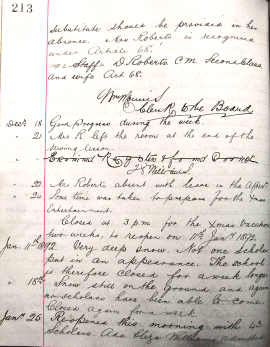 213
substitute should be provided in her
absence. Mrs Roberts is recognised
under Article 68.
Staff:- D Roberts C M Second Class
and wife Art 68.
Wm Morris
Clerk to the Board
Dec 18 Good Progress during the week.
" 21 Mrs R left the room at the end of the
sewing lesson.
Examined Registers & found Correct
J Williams
" 22 Mr Roberts absent with leave in the Aftern
" 24 Some time was taken to prepare for the Xmas
Entertainment.
Closed at 3 pm for the Xmas Vacation
two weeks, to reopen on 11th Jany 1892
Jan 11th 1892 Very deep snow. Not one scholar
put in an appearance. The school
is therefore closed for a week longer
" 18th Snow still on the ground, and again
no scholars have been able to come.
Closed again for a week
Jany 25 Reopened this morning with 43
Scholars. Ada Eliza Williams admitted